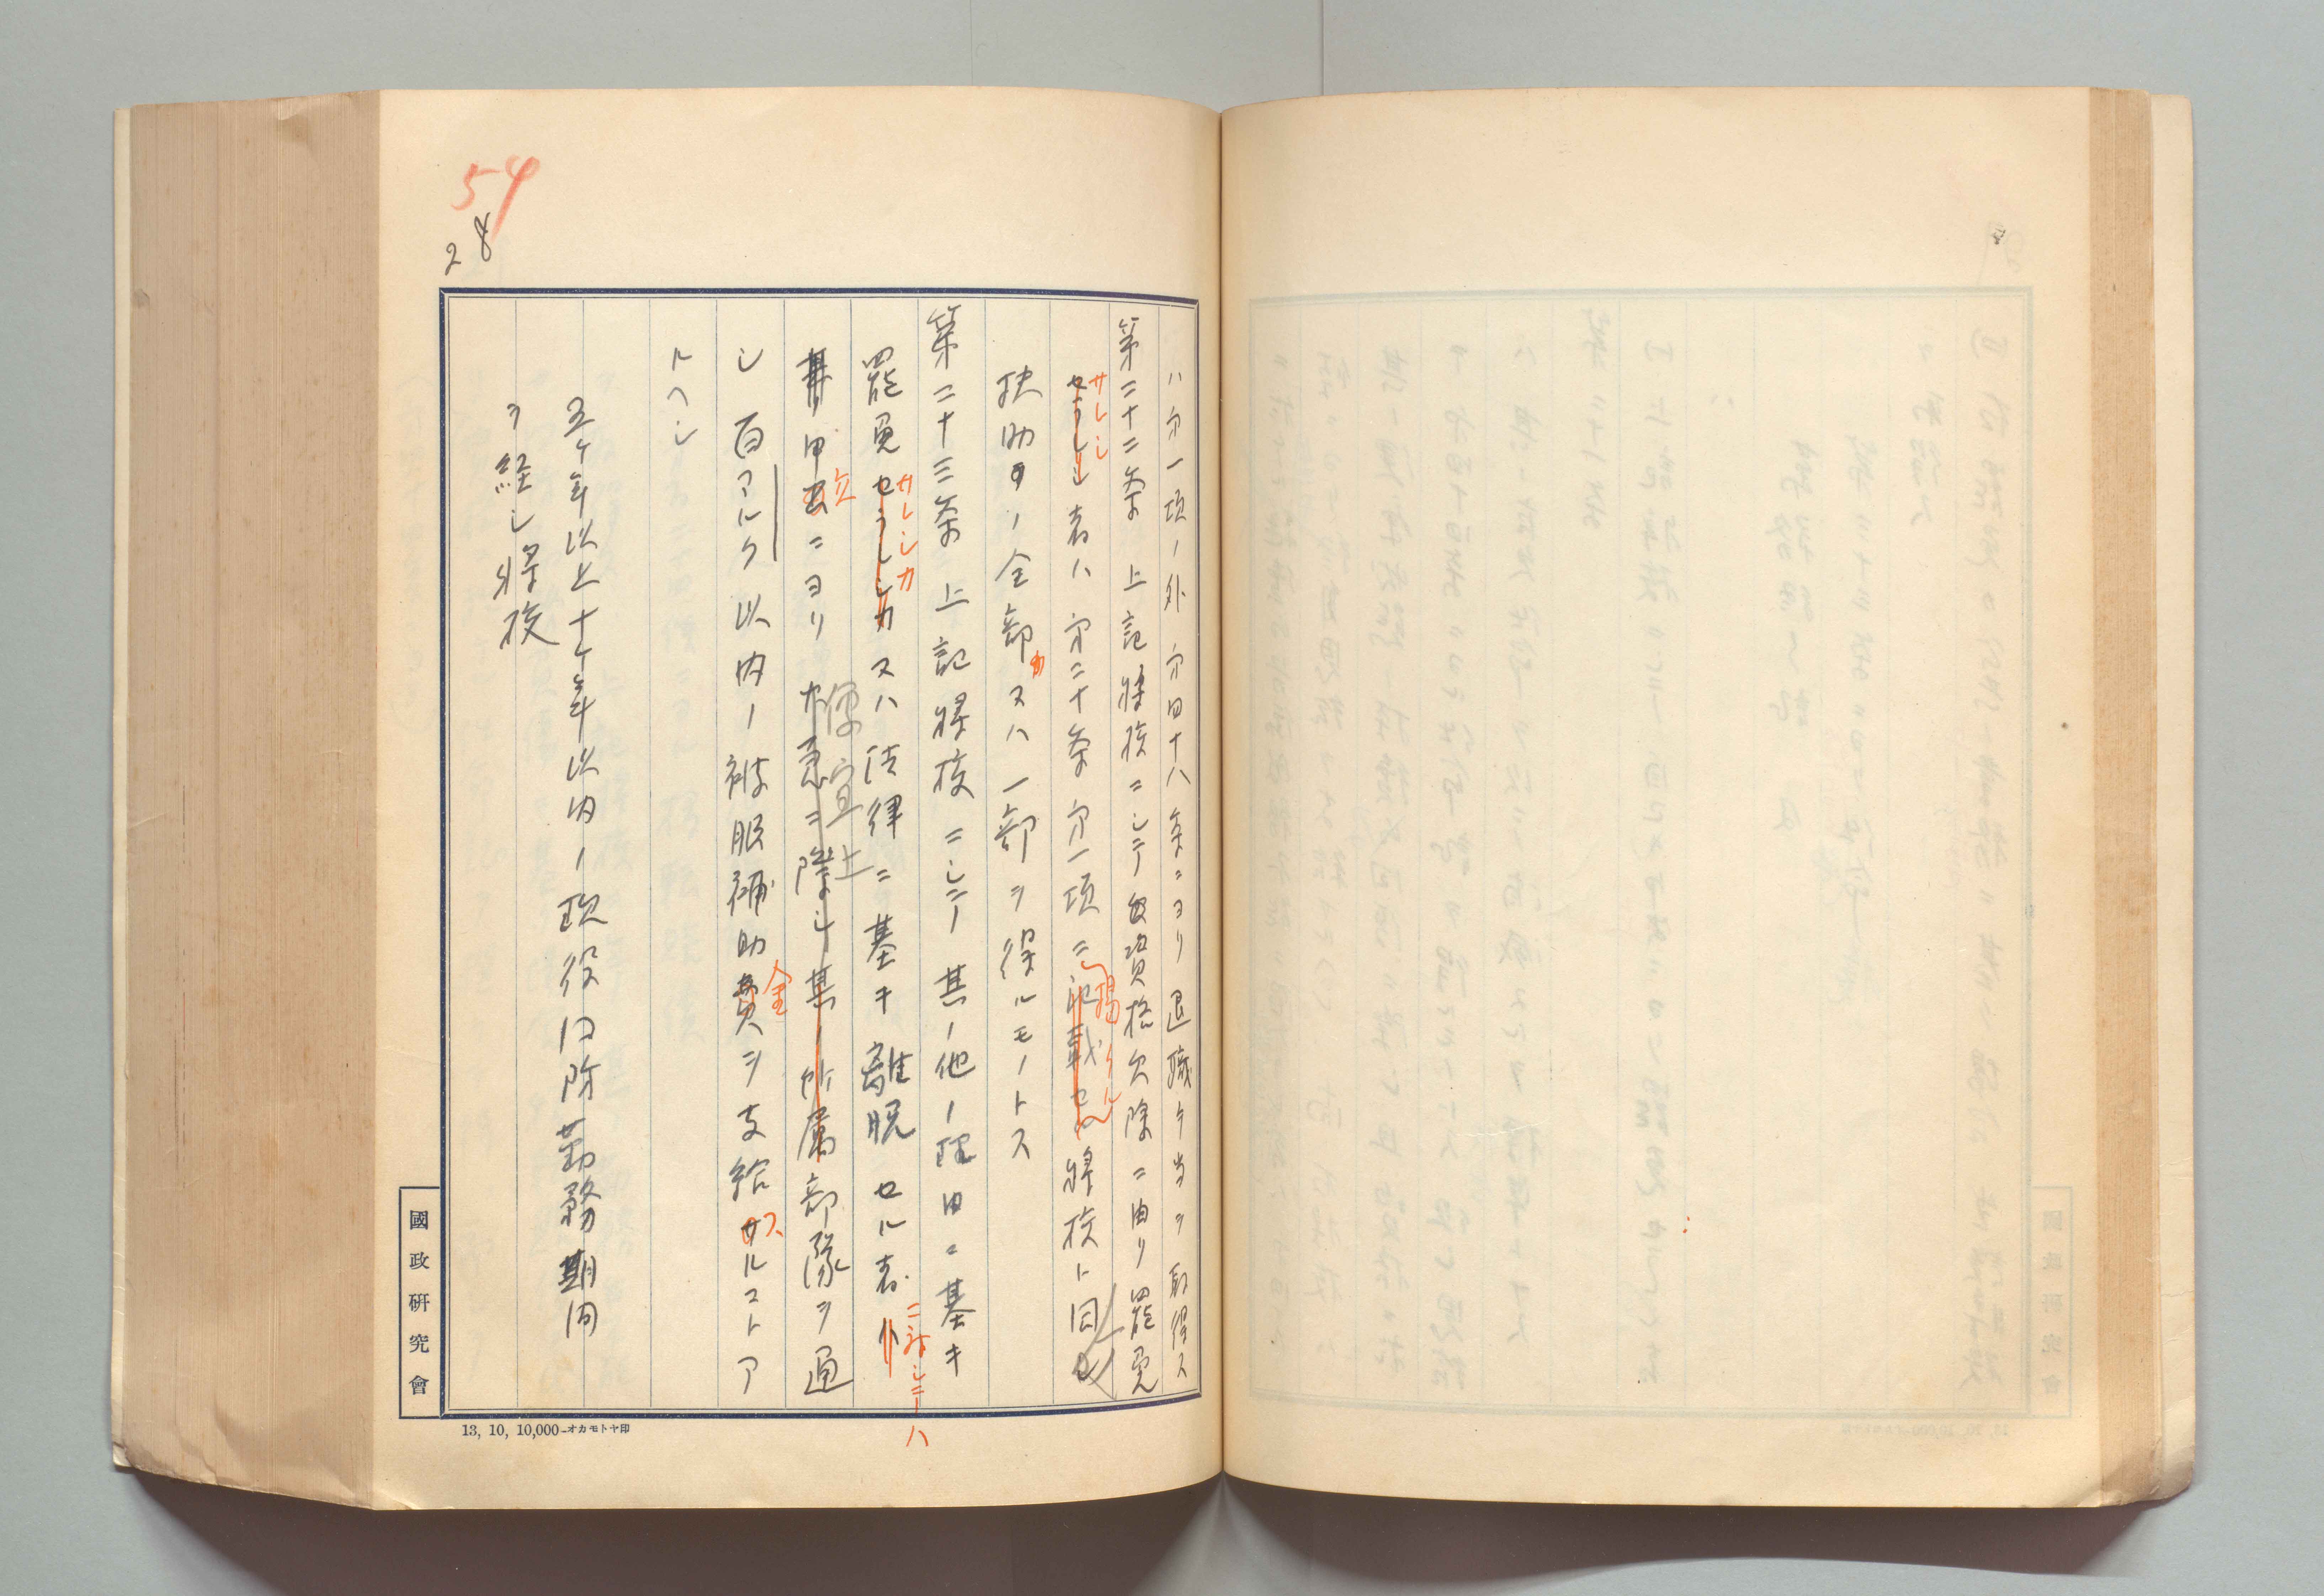 54
28
ハ第一項ノ外第四十八条ニヨリ退職手当ヲ取得ス
第二十二条 上記将校ニシテ女資格欠除ニ由リ罷免
サレシ
者ハ第二十条第一項ニ記載セル将校ト同
掲クル
扶助ノ全部又ハ一部ヲ得ルモノトス
第二十三条 上記将校ニシテ其ノ他ノ理由ニ基キ
罷免セラレシカ又ハ法律ニ基キ離脱セル者ハ
サレシカ
ニ対シテハ
ニヨリ其ノ所属部隊ヲ通
便宜上
シ百マルク以内ノ被服補助費ヲ支給サルコトア
金
ス
ルヘシ
五ケ年以上十ケ年以内ノ現役国防勤務期間
ヲ経シ将校
國政研究會
13, 10, 10,000-オカモトヤ印